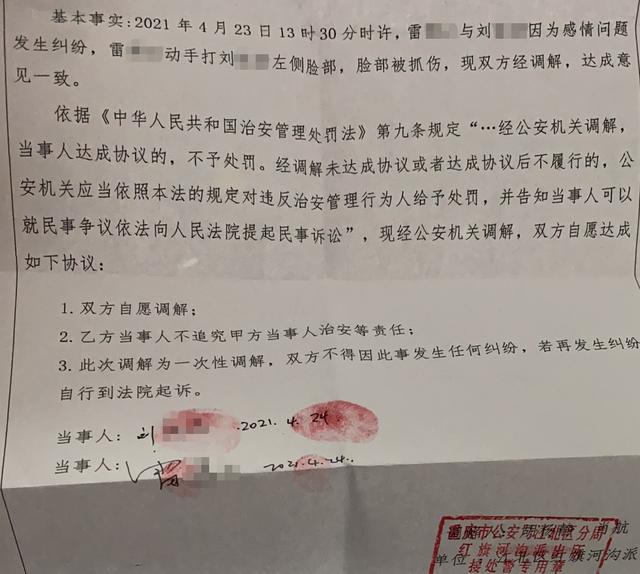 基本事实:2021年4月23日13时30分时许,雷 与刘 因为感情问题
发生纠纷,雷 动手打刘 左侧脸部,脸部被抓伤,现双方经调解,达成意
见一致。
依据《中华人民共和国治安管理处罚法》第九条规定“…经公安机关调解,
当事人达成协议的,不予处罚。经调解未达成协议或者达成协议后不履行的,公
安机关应当依照本法的规定对违反治安管理行为人给予处罚,并告知当事人可以
就民事争议依法向人民法院提起民事诉讼”,现经公安机关调解,双方自愿达成
如下协议:
1.双方自愿调解;
2.乙方当事人不追究甲方当事人治安等责任;
3.此次调解为一次性调解,双方不得因此事发生任何纠纷,若再发生纠纷
自行到法院起诉。
当事人:刘 2021.4.24
当事人: 2021.4.24.
重庆市公安 江北区分局
红旗河沟派出所
接处警专用章
航
单位 江北区红旗河沟派